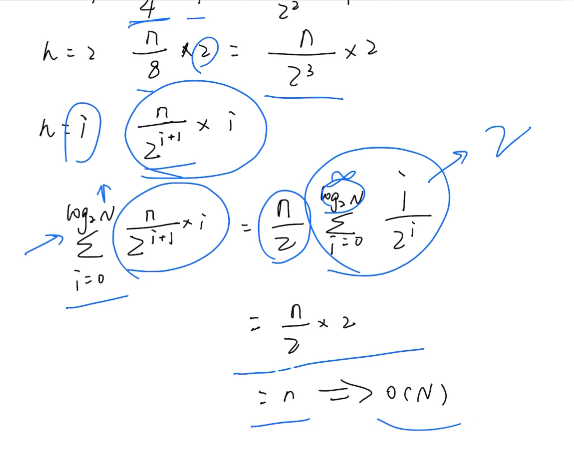 4 2²
h = 2 n/8 × 2 = n/2³ × 2
h = i n/2^(i+1) × i
2
∞
log₂N Σ i=0 n/2^(i+1) × i = n/2 log₂N Σ i=0 i/2^i
= n/2 × 2
= n => O(N)